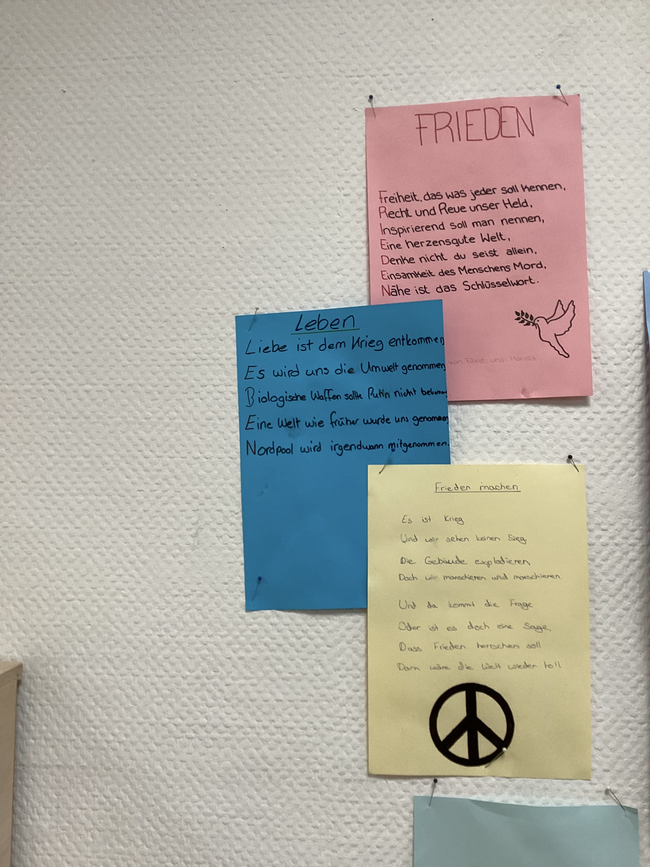 FRIEDEN
Freiheit, das was jeder soll kennen,
Recht und Reue unser Held,
Inspirierend soll man nennen,
Eine herzensgute Welt,
Denke nicht du seist allein,
Einsamkeit des Menschens Mord,
Nähe ist das Schlüsselwort.
von und
Leben
Liebe ist dem Krieg entkommen
Es wird uns die Umwelt genommen
Biologische Waffen sollte Putin nicht
Eine Welt wie früher wurde uns genommen
Nordpool wird irgendwann mitgenommen.
Frieden machen
Es ist Krieg
Und wir sehen keinen Sieg
Die Gebäude explodieren,
Doch wir marschieren und marschieren.
Und da kommt die Frage
Oder ist es doch eine Sage,
Dass Frieden herrschen soll
Dann wäre die Welt wieder toll